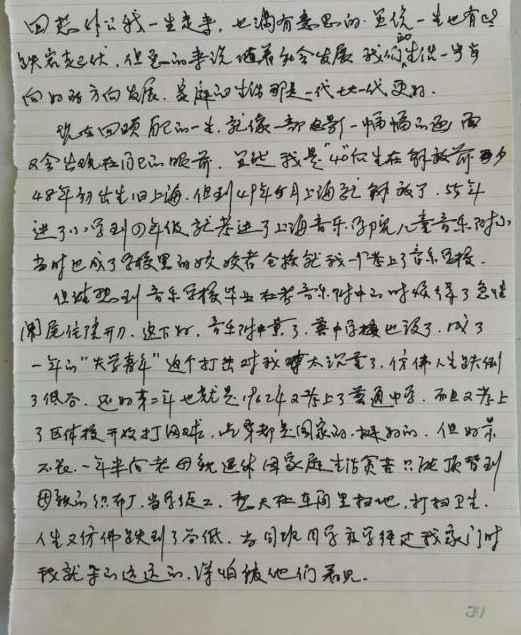 回想我一生走来，也满有意思的。虽说一生也有些
跌宕起伏，但总的来说随着社会发展我们的生活一步步
向好的方向发展。家庭的生活那是一代比一代更好。
现在回顾自己的一生，就像一部电影一幅幅的画面
又会出现在自己的眼前。虽然我是"40"后生在解放前
48年初出生旧上海，但到49年5月上海就解放了。55年
进了小学到四年级就考进了上海音乐学院儿童音乐附小
当时也成了学校里的佼佼者全校就我一个考上了音乐学校。
但没想到音乐学校毕业在考音乐附中的时候得了急性
阑尾住院开刀，这下好，音乐附中黄了，普中学校也没了，成了
一年的"失学青年"这个打击对我太沉重了，仿佛人生跌倒
了低谷。还好第二年也就是1962年又考上了普通中学，而且又考上
了区体校开始打网球，此穿都是国家的，挺好的。但好景
不长，一年半后老母亲退休因家庭生活贫苦只能顶替到
母亲的织布厂当学徒工，整天在车间里扫地，打扫卫生。
人生又仿佛跌到了谷低，当同班同学放学经过我家门时
我就躲的远远的，深怕被他们看见。